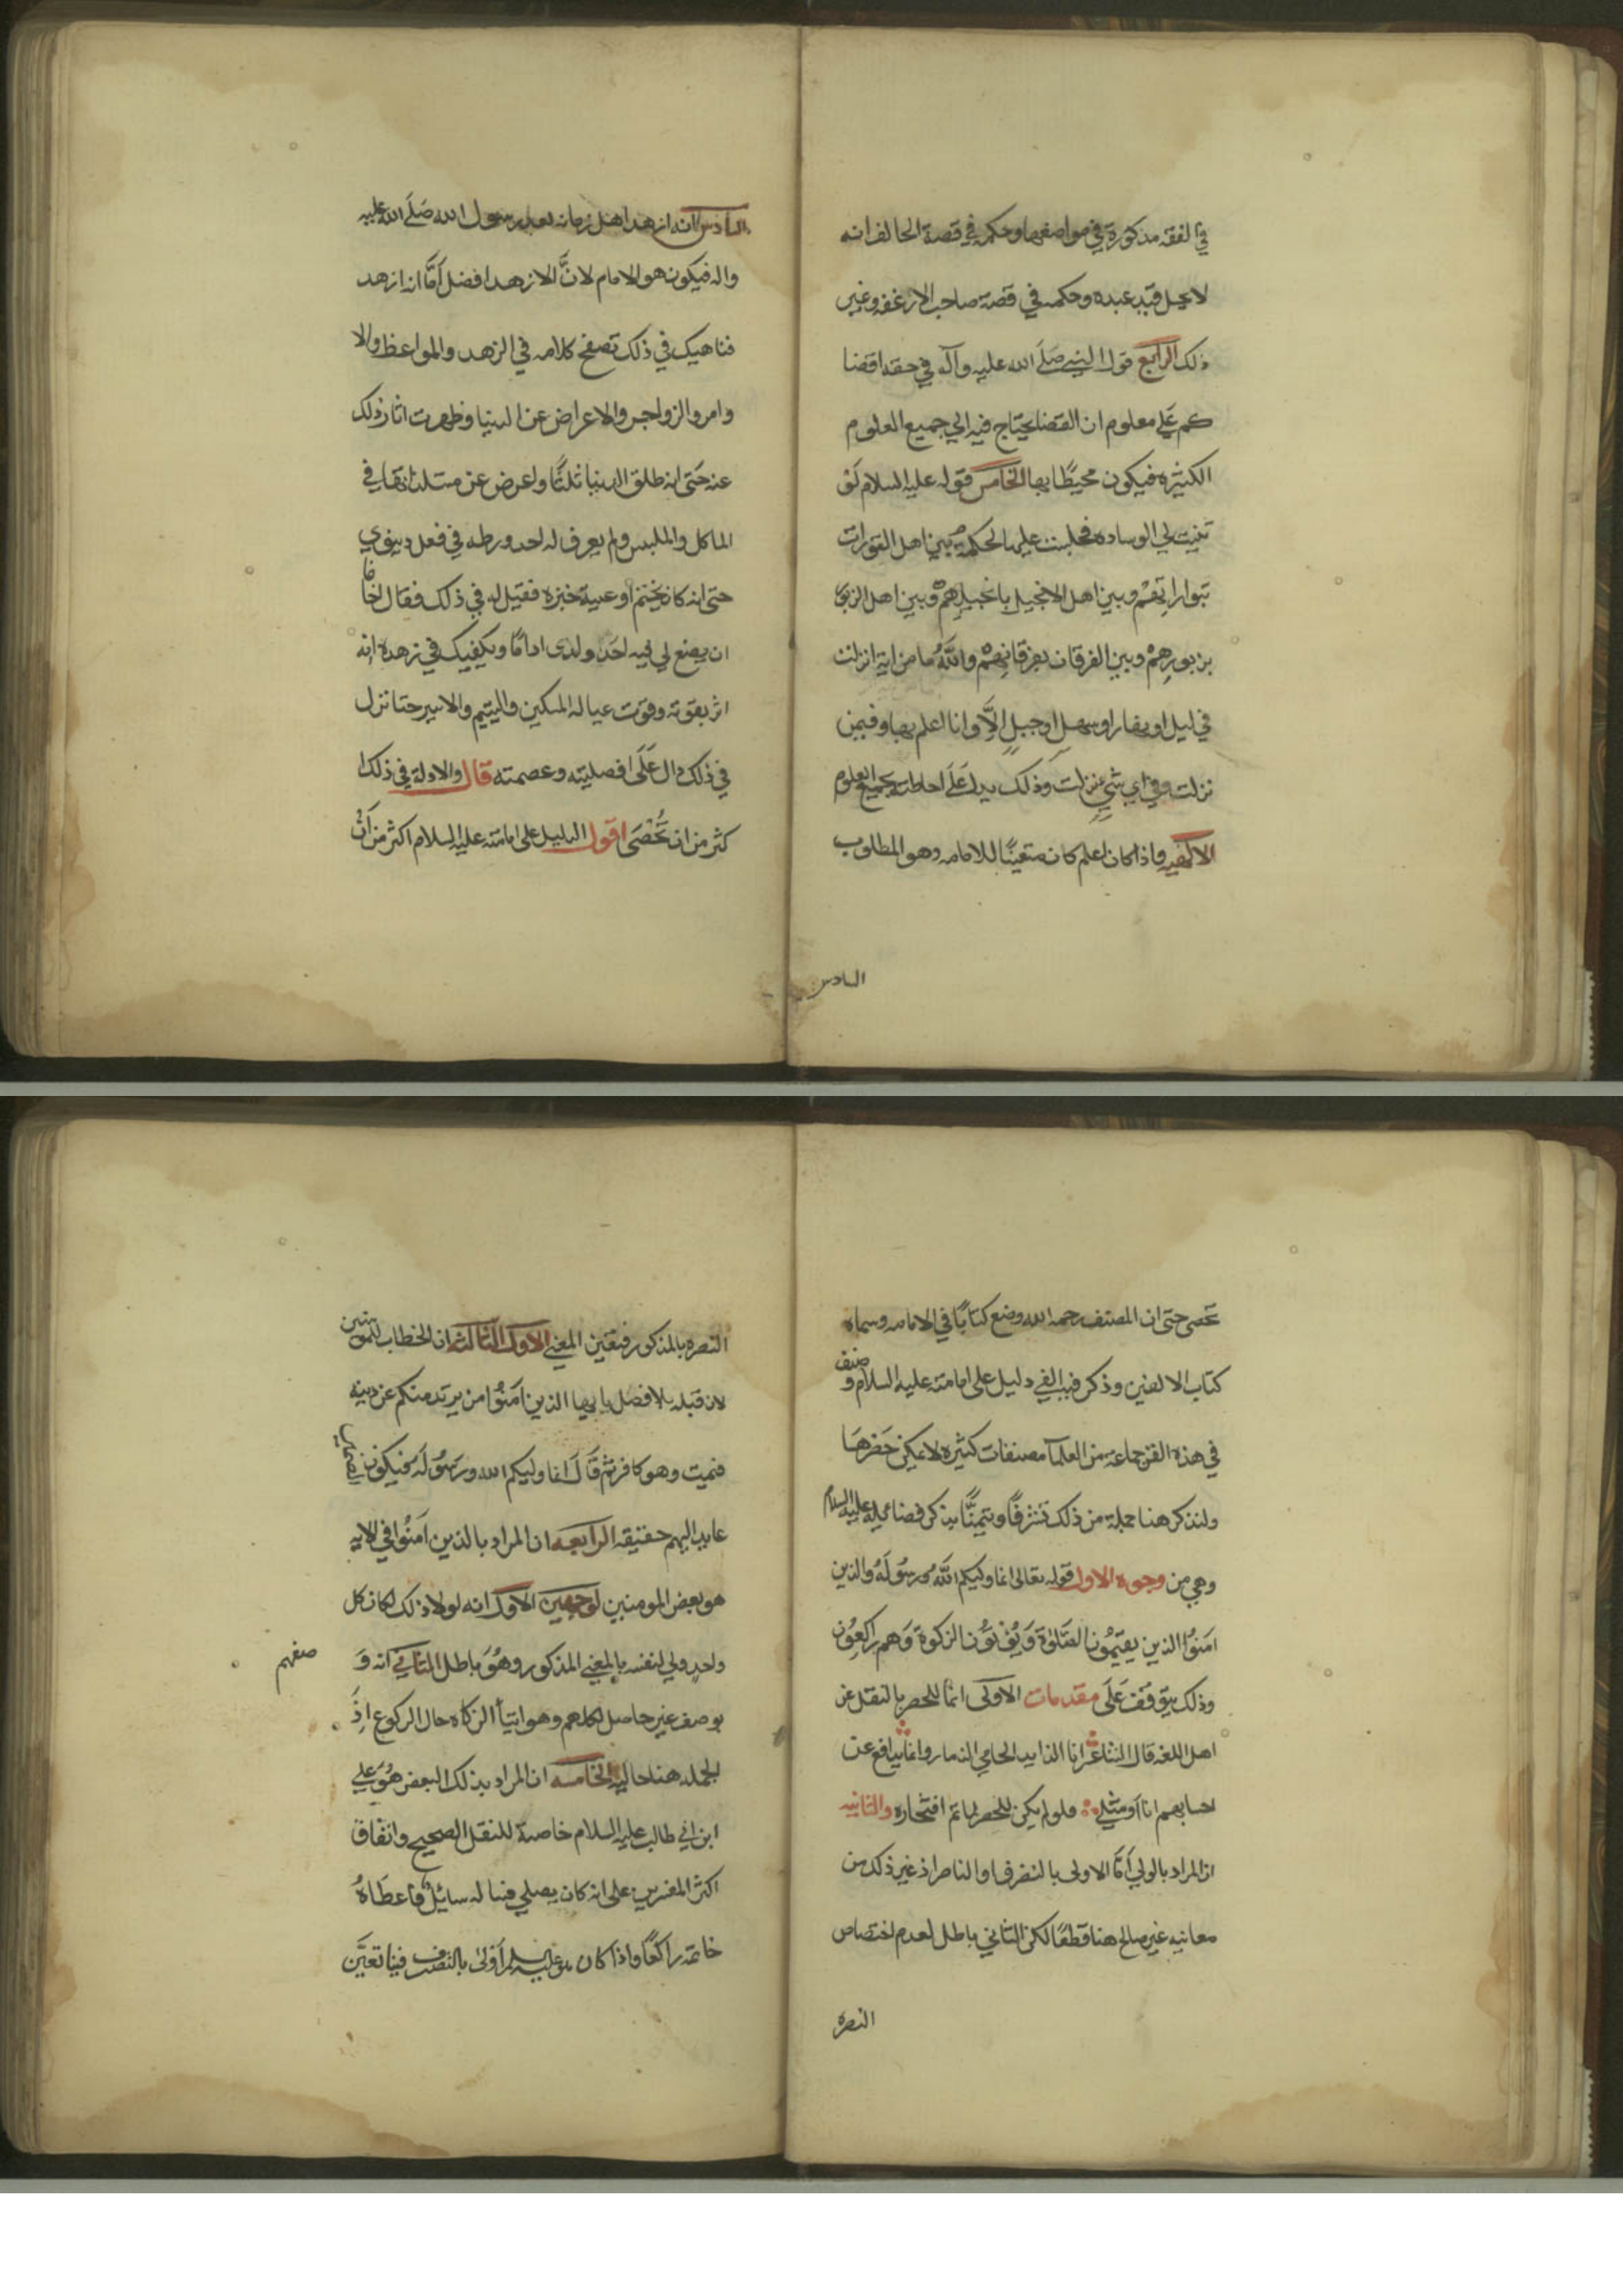 في الفقه مذكورة في مواضعها وحكمه في قصة الحالف انه
لا يحل قيد عبده وحكمه في قصة صاحب الارغفه وغير
ذلك الرابع قول النبي صَلَّى الله عليه وآله في حقه اقضا
كم عَلي معلوم ان القضا يحتاج فيه الي جميع العلوم
الكثيره فيكون محيطًا بها الخامس قوله عليه السلام لَو
ثنيت لي الوساده فجلست عليها لحكمت بين اهل التورات
بتوراتهم وبين اهل الانجيل بانجيلهم وبين اهل الزبور
بزبورهم وبين الفرقان بفرقانهم واللَّه ما من اية انزلت
في ليل او نهار او سهل او جبل الَّا وانا اعلم بها وفيمن
نزلت وفي اي شيء نزلت وذلك يدل عَلَى احاطته بجميع العلوم
الالهيه واذا كان اعلم كان متعينًا للامامه وهو المطلوب
السادس
السادس انه ازهد اهل زمانه بعد رسول الله صَلَّى الله عليه
واله فيكون هو الامام لانَّ الازهد افضل اَمَّا انه ازهد
فناهيك في ذلك تصفح كلامه في الزهد والمواعظ والا
وامر والزواجر والاعراض عن الدنيا وظهرت اثار ذلك
عنه حَتى انه طلق الدنيا ثلثًا واعرض عن مستلذاتها في
الماكل والملبس ولم يعرف له احد ورطه في فعل دنيوي
حتى انه كان يختم اوعية خبزه فقيل له في ذلك فقال اخاف
ان يضع لي فيه احَد ولدى اداما ويكفيك في زهده انه
اثر بقوته وقوت عياله المسكين واليتيم والاسير حتا نزل
في ذلك دال عَلَى افضليته وعصمته قال والادلة في ذلك ا
كثر من ان تُحْصَى اقول الدليل على امامته عليه السلام اكثر من اَنْ
تحصى حتى ان المصنف رحمه الله وضع كتابًا في الامامه وسماه
كتاب الالفين وذكر فيه الفي دليل على امامته عليه السلام وصنف
في هذه الفن جماعة من العلمآ مصنفات كثيره لا يمكن حَصْرهَا
ولنذكر هنا جملة من ذلك تشرفًا وتيمنًّا بذكر فضايله عليه السلام
وهي من وجوه الاول قوله تعالى انما وليكم اللَّه ورسُولَهُ والذين
امَنوُا الذين يقيمُونَ الصَّلوٰةَ وَيُؤتوُنَ الزكوة وَهم راكِعُون
وذلك يتوقفُ عَلَى مقدمات الاولى انما للحصر بالنقل عن
اهل اللغه قال الشاعر انا الذايد الحامي الذمار وانما يدافع عن
احسابهم انا اَو مثلي فلو لم يكن للحصر لما تم افتخاره والثانيه
ان المراد بالولي اَمّا الاولى بالتصرف او الناصر اذ غير ذلك من
معانيه غير صالح هنا قطعًا لكن الثاني باطل لعدم اختصاص
النصره
النصره بالمذكور فتعين المعني الاول الثالثه ان الخطاب للمومنين
لان قبله بلا فصل يا ايها الذين امَنُوا من يرتد منكم عن دينه
فيميت وهو كافر ثم قالَ انما وليكم الله ورسُولَهُ فيكون
عايد اليهم حقيقه الرابعه ان المراد بالذين امَنُوا في الايه
هو بعض المومنين لوجهين الاول انه لولا ذلك لكان كل
واحد ولي لنفسه بالمعني المذكور وهُوَ باطل الثاني انه وَ
صفهم
بوصف غير حاصل لكلهم وهو ايتآ الزكاه حال الركوع اذ
الجمله هنا حاليه الخامسه ان المراد بذلك البعض هُوَ علي
ابن ابي طالب عليه السلام خاصة للنقل الصحيح واتفاق
اكثر المفسرين على انه كان يصلي فساله سايلٌ فاعطَاهُ
خاتمه راكعًا واذا كان هو عليه السلم اَوْلىٰ بالتصرف فينا تعيَّن